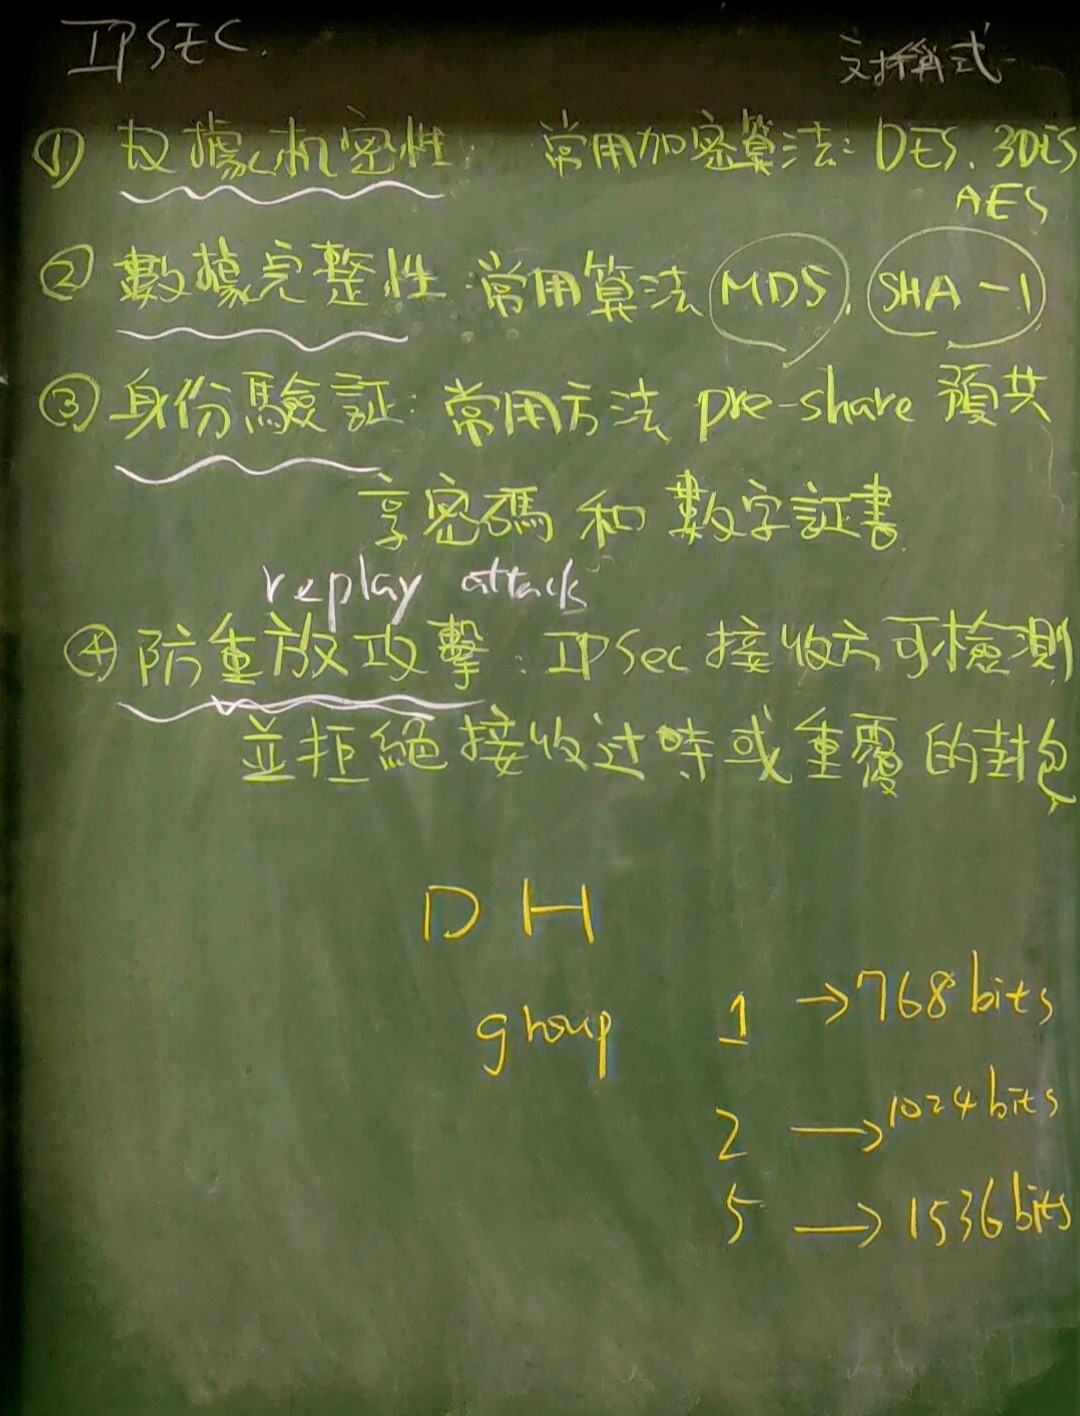 IPSEC.
对稱式
① 数據机密性 常用加密算法: DES. 3DES
AES
② 數據完整性:常用算法 MD5. SHA-1
③ 身份驗証: 常用方法 pre-share 預共
享密碼和數字証書
replay attack
④ 防重放攻擊: IPSec 接收方可檢測
並拒絕接收过時或重覆的封包
DH
group 1 → 768 bits
2 → 1024 bits
5 → 1536 bits